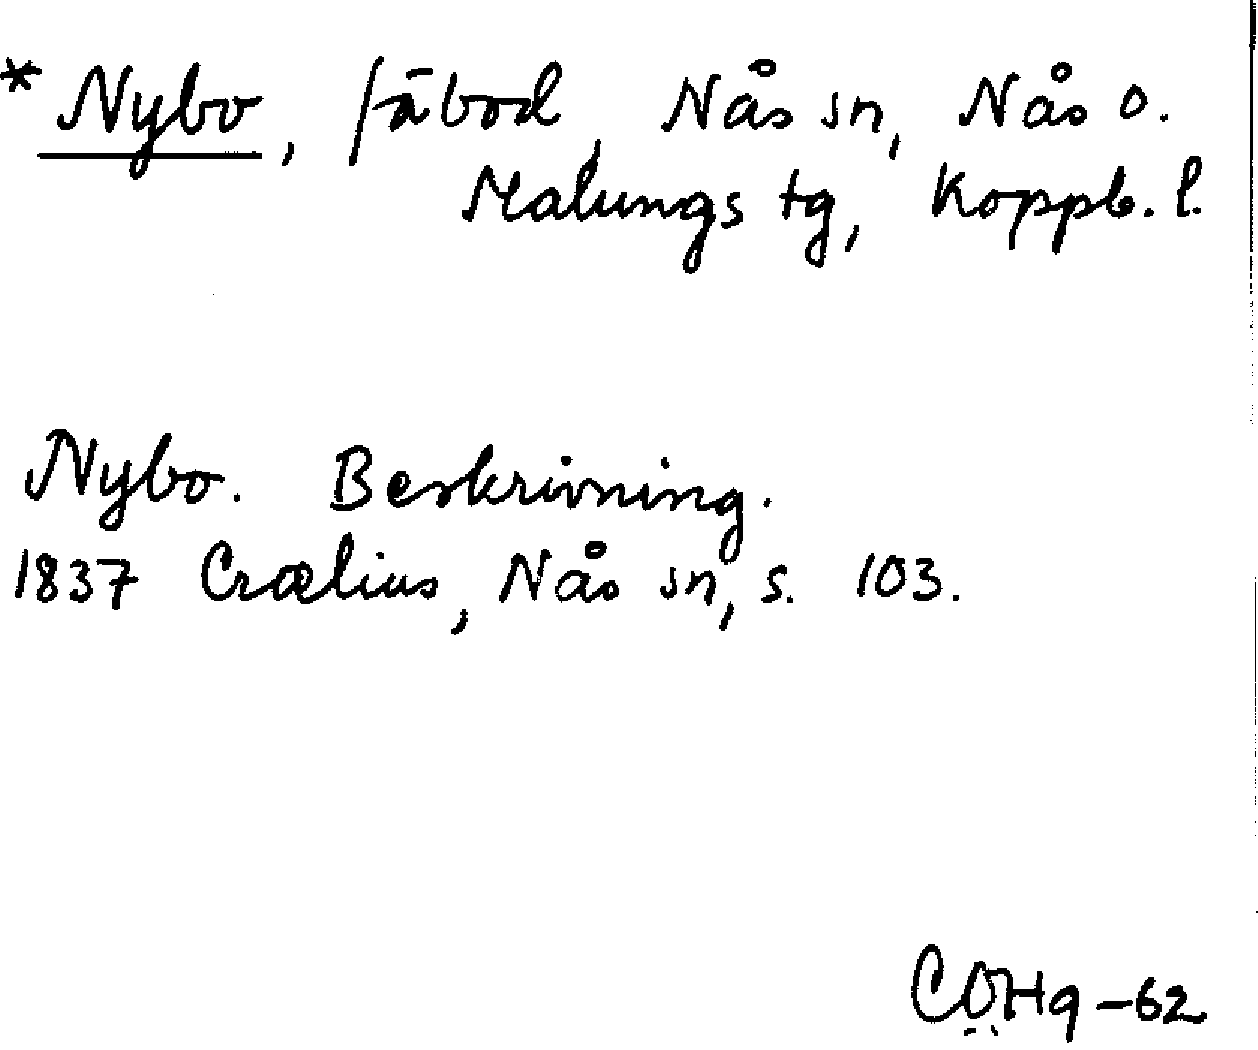 * Nybo, fäbod, Nås sn, Nås o.
Malungs tg, Koppb. l.
Nybo. Beskrivning.
1837 Crælius, Nås sn, s. 103.